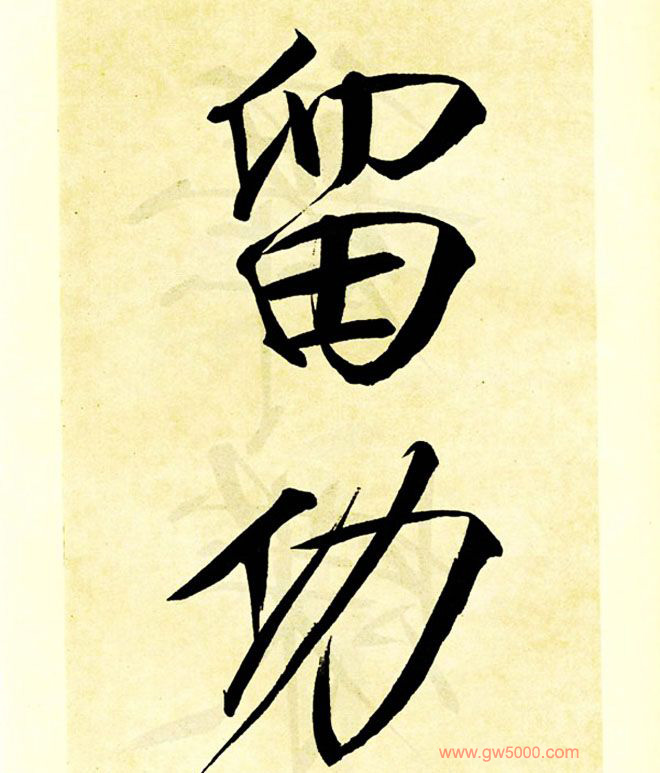 留
功
www.gw5000.com